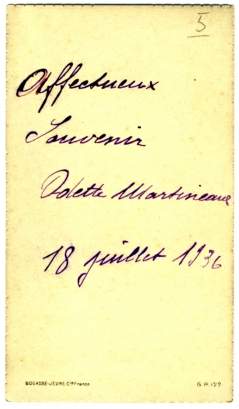 5
Affectueux
Souvenir
Odette Martineau
18 juillet 1936
BOUASSE-JEUNE Cie France